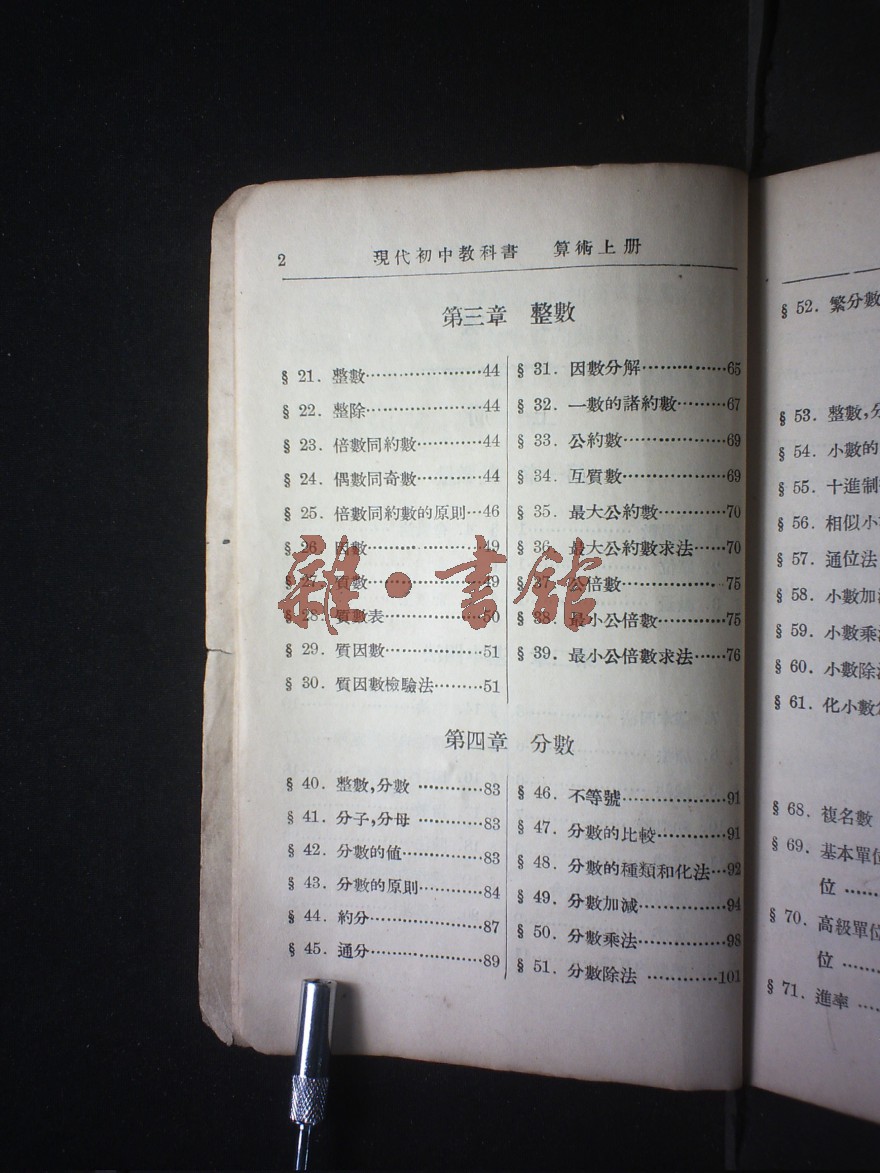 2 現代初中教科書 算術上册
第三章 整數
§ 21. 整數…………………44
§ 22. 整除…………………44
§ 23. 倍數同約數…………44
§ 24. 偶數同奇數…………44
§ 25. 倍數同約數的原則…46
§ 26. 因數…………………49
§ 27. 質數…………………49
§ 28. 質數表………………50
§ 29. 質因數………………51
§ 30. 質因數檢驗法………51
§ 31. 因數分解……………65
§ 32. 一數的諸約數………67
§ 33. 公約數………………69
§ 34. 互質數………………69
§ 35. 最大公約數…………70
§ 36. 最大公約數求法……70
§ 37. 公倍數………………75
§ 38. 最小公倍數…………75
§ 39. 最小公倍數求法……76
雜·書館
第四章 分數
§ 40. 整數,分數…………83
§ 41. 分子,分母…………83
§ 42. 分數的值……………83
§ 43. 分數的原則…………84
§ 44. 約分…………………87
§ 45. 通分…………………89
§ 46. 不等號………………91
§ 47. 分數的比較…………91
§ 48. 分數的種類和化法…92
§ 49. 分數加減……………94
§ 50. 分數乘法……………98
§ 51. 分數除法…………101
§ 52. 繁分數
§ 53. 整數,分
§ 54. 小數的
§ 55. 十進制
§ 56. 相似小
§ 57. 通位法
§ 58. 小數加
§ 59. 小數乘
§ 60. 小數除
§ 61. 化小數
§ 68. 複名數
§ 69. 基本單位
位……
§ 70. 高級單位
位……
§ 71. 進率……